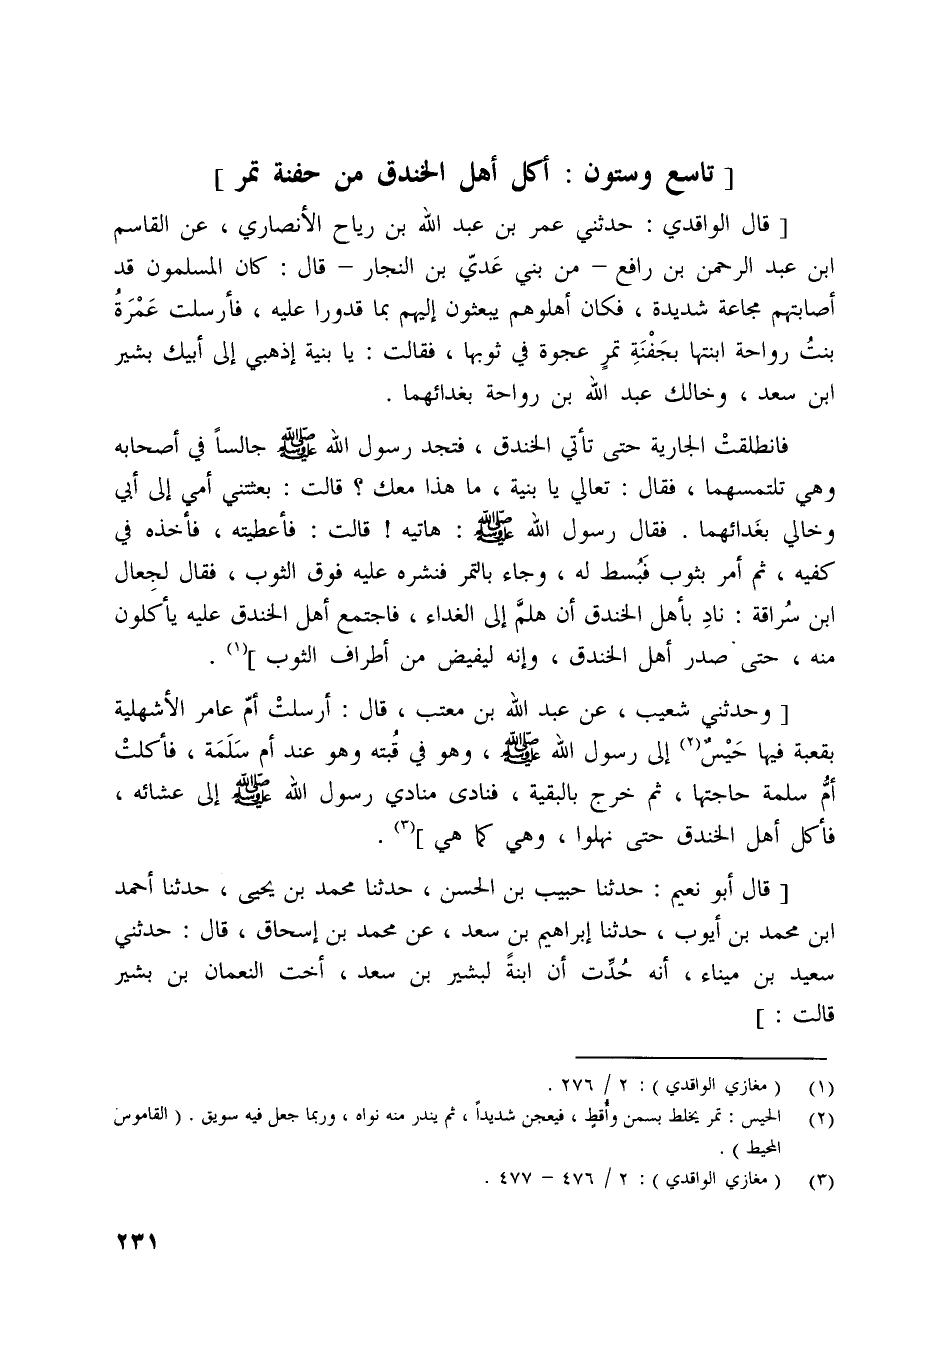 [ تاسع وستون : أكل أهل الخندق من حفنة تمر ]
[ قال الواقدي : حدثني عمر بن عبد الله بن رياح الأنصاري ، عن القاسم
ابن عبد الرحمن بن رافع – من بني عَديّ بن النجار – قال : كان المسلمون قد
أصابتهم مجاعة شديدة ، فكان أهلوهم يبعثون إليهم بما قدورا عليه ، فأرسلت عَمْرَةُ
بنتُ رواحة ابنتها بجَفْنَةِ تمرٍ عجوة في ثوبها ، فقالت : يا بنية إذهبي إلى أبيك بشير
ابن سعد ، وخالك عبد الله بن رواحة بغدائهما .
فانطلقتْ الجارية حتى تأتي الخندق ، فتجد رسول الله ﷺ جالساً في أصحابه
وهي تلتمسهما ، فقال : تعالي يا بنية ، ما هذا معك ؟ قالت : بعثتني أمي إلى أبي
وخالي بغَدائهما . فقال رسول الله ﷺ : هاتيه ! قالت : فأعطيته ، فأخذه في
كفيه ، ثم أمر بثوب فَبُسط له ، وجاء بالتمر فنشره عليه فوق الثوب ، فقال لجِعال
ابن سُراقة : نادِ بأهل الخندق أن هلمَّ إلى الغداء ، فاجتمع أهل الخندق عليه يأكلون
منه ، حتى صدر أهل الخندق ، وإنه ليفيض من أطراف الثوب ](١) .
[ وحدثني شعيب ، عن عبد الله بن معتب ، قال : أرسلتْ أمّ عامر الأشهلية
بقعبة فيها حَيْسٌ(٢) إلى رسول الله ﷺ ، وهو في قُبته وهو عند أم سَلَمَة ، فأكلتْ
أمُّ سلمة حاجتها ، ثم خرج بالبقية ، فنادى منادي رسول الله ﷺ إلى عشائه ،
فأكل أهل الخندق حتى نهلوا ، وهي كما هي ](٣) .
[ قال أبو نعيم : حدثنا حبيب بن الحسن ، حدثنا محمد بن يحيى ، حدثنا أحمد
ابن محمد بن أيوب ، حدثنا إبراهيم بن سعد ، عن محمد بن إسحاق ، قال : حدثني
سعيد بن ميناء ، أنه حُدِّت أن ابنةً لبشير بن سعد ، أخت النعمان بن بشير
قالت : ]
(١) ( مغازي الواقدي ) : ٢ / ٢٧٦ .
(٢) الحيس : تمر يخلط بسمن وأُقطٍ ، فيعجن شديداً ، ثم يندر منه نواه ، وربما جعل فيه سويق . ( القاموس
المحيط ) .
(٣) ( مغازي الواقدي ) : ٢ / ٤٧٦ – ٤٧٧ .
٢٣١